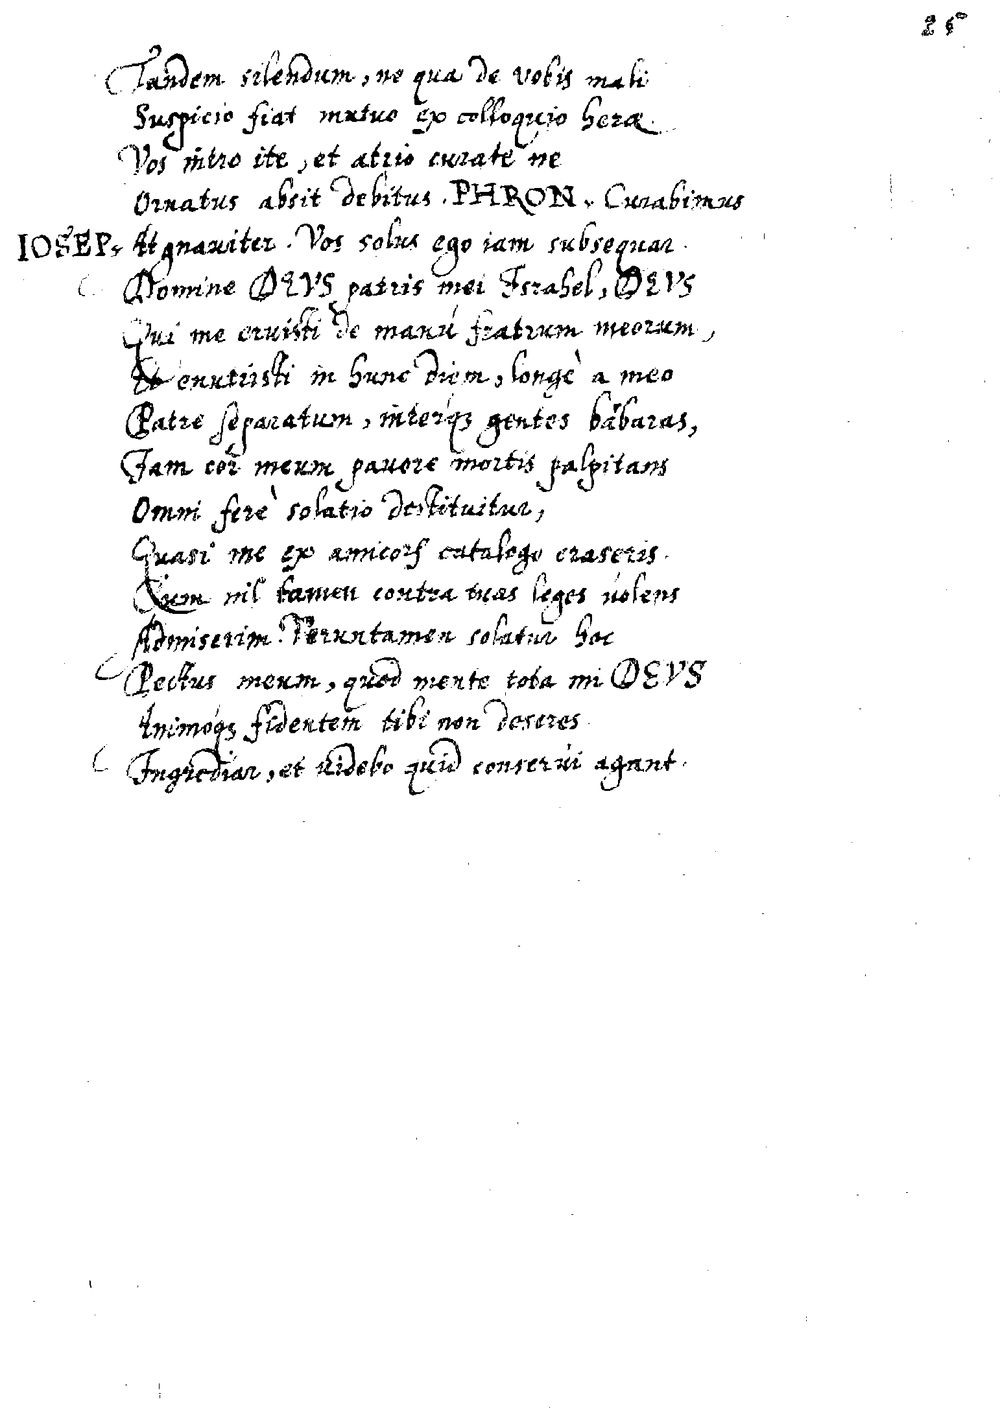 25
Tandem silendum, ne qua de vobis mali
Suspicio fiat mutuo ex colloquio heræ.
Vos intro ite, et atrio curate ne
Ornatus absit debitus. PHRON. Curabimus
IOSEP. At gnauiter. Vos solus ego iam subsequar.
Domine DEVS patris mei Israhel, DEVS
Qui me eruisti de manu fratrum meorum,
Et enutristi in hunc diem, longè a meo
Patre separatum, interq; gentes barbaras,
Iam cor meum pauore mortis palpitans
Omni ferè solatio destituitur,
Quasi me ex amicorum catalogo eraseris.
Quum nil tamen contra tuas leges uolens
Admiserim. Veruntamen solatur hoc
Pectus meum, quod mente tota mi DEVS
Animoq; fidentem tibi non deseres.
Ingrediar, et uidebo quid conserui agant.